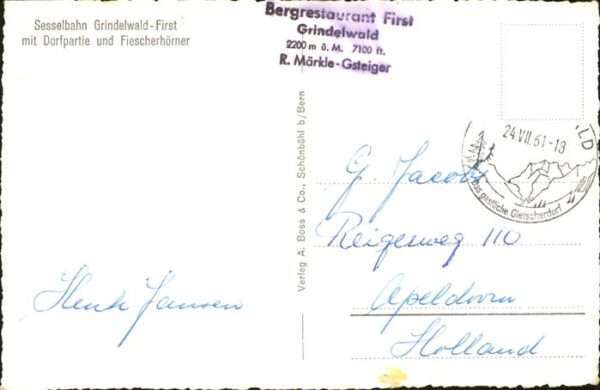 Sesselbahn Grindelwald-First
mit Dorfpartie und Fiescherhörner
Bergrestaurant First
Grindelwald
2200 m ü. M. 7100 ft.
R. Märkle-Gsteiger
LD
24.VII.61-18
Das gastliche Gletscherdorf
Verlag A. Boss & Co., Schönbühl b/Bern
G. Jacobs
Reigersweg 110
Apeldoorn
Holland
Henk Jansen